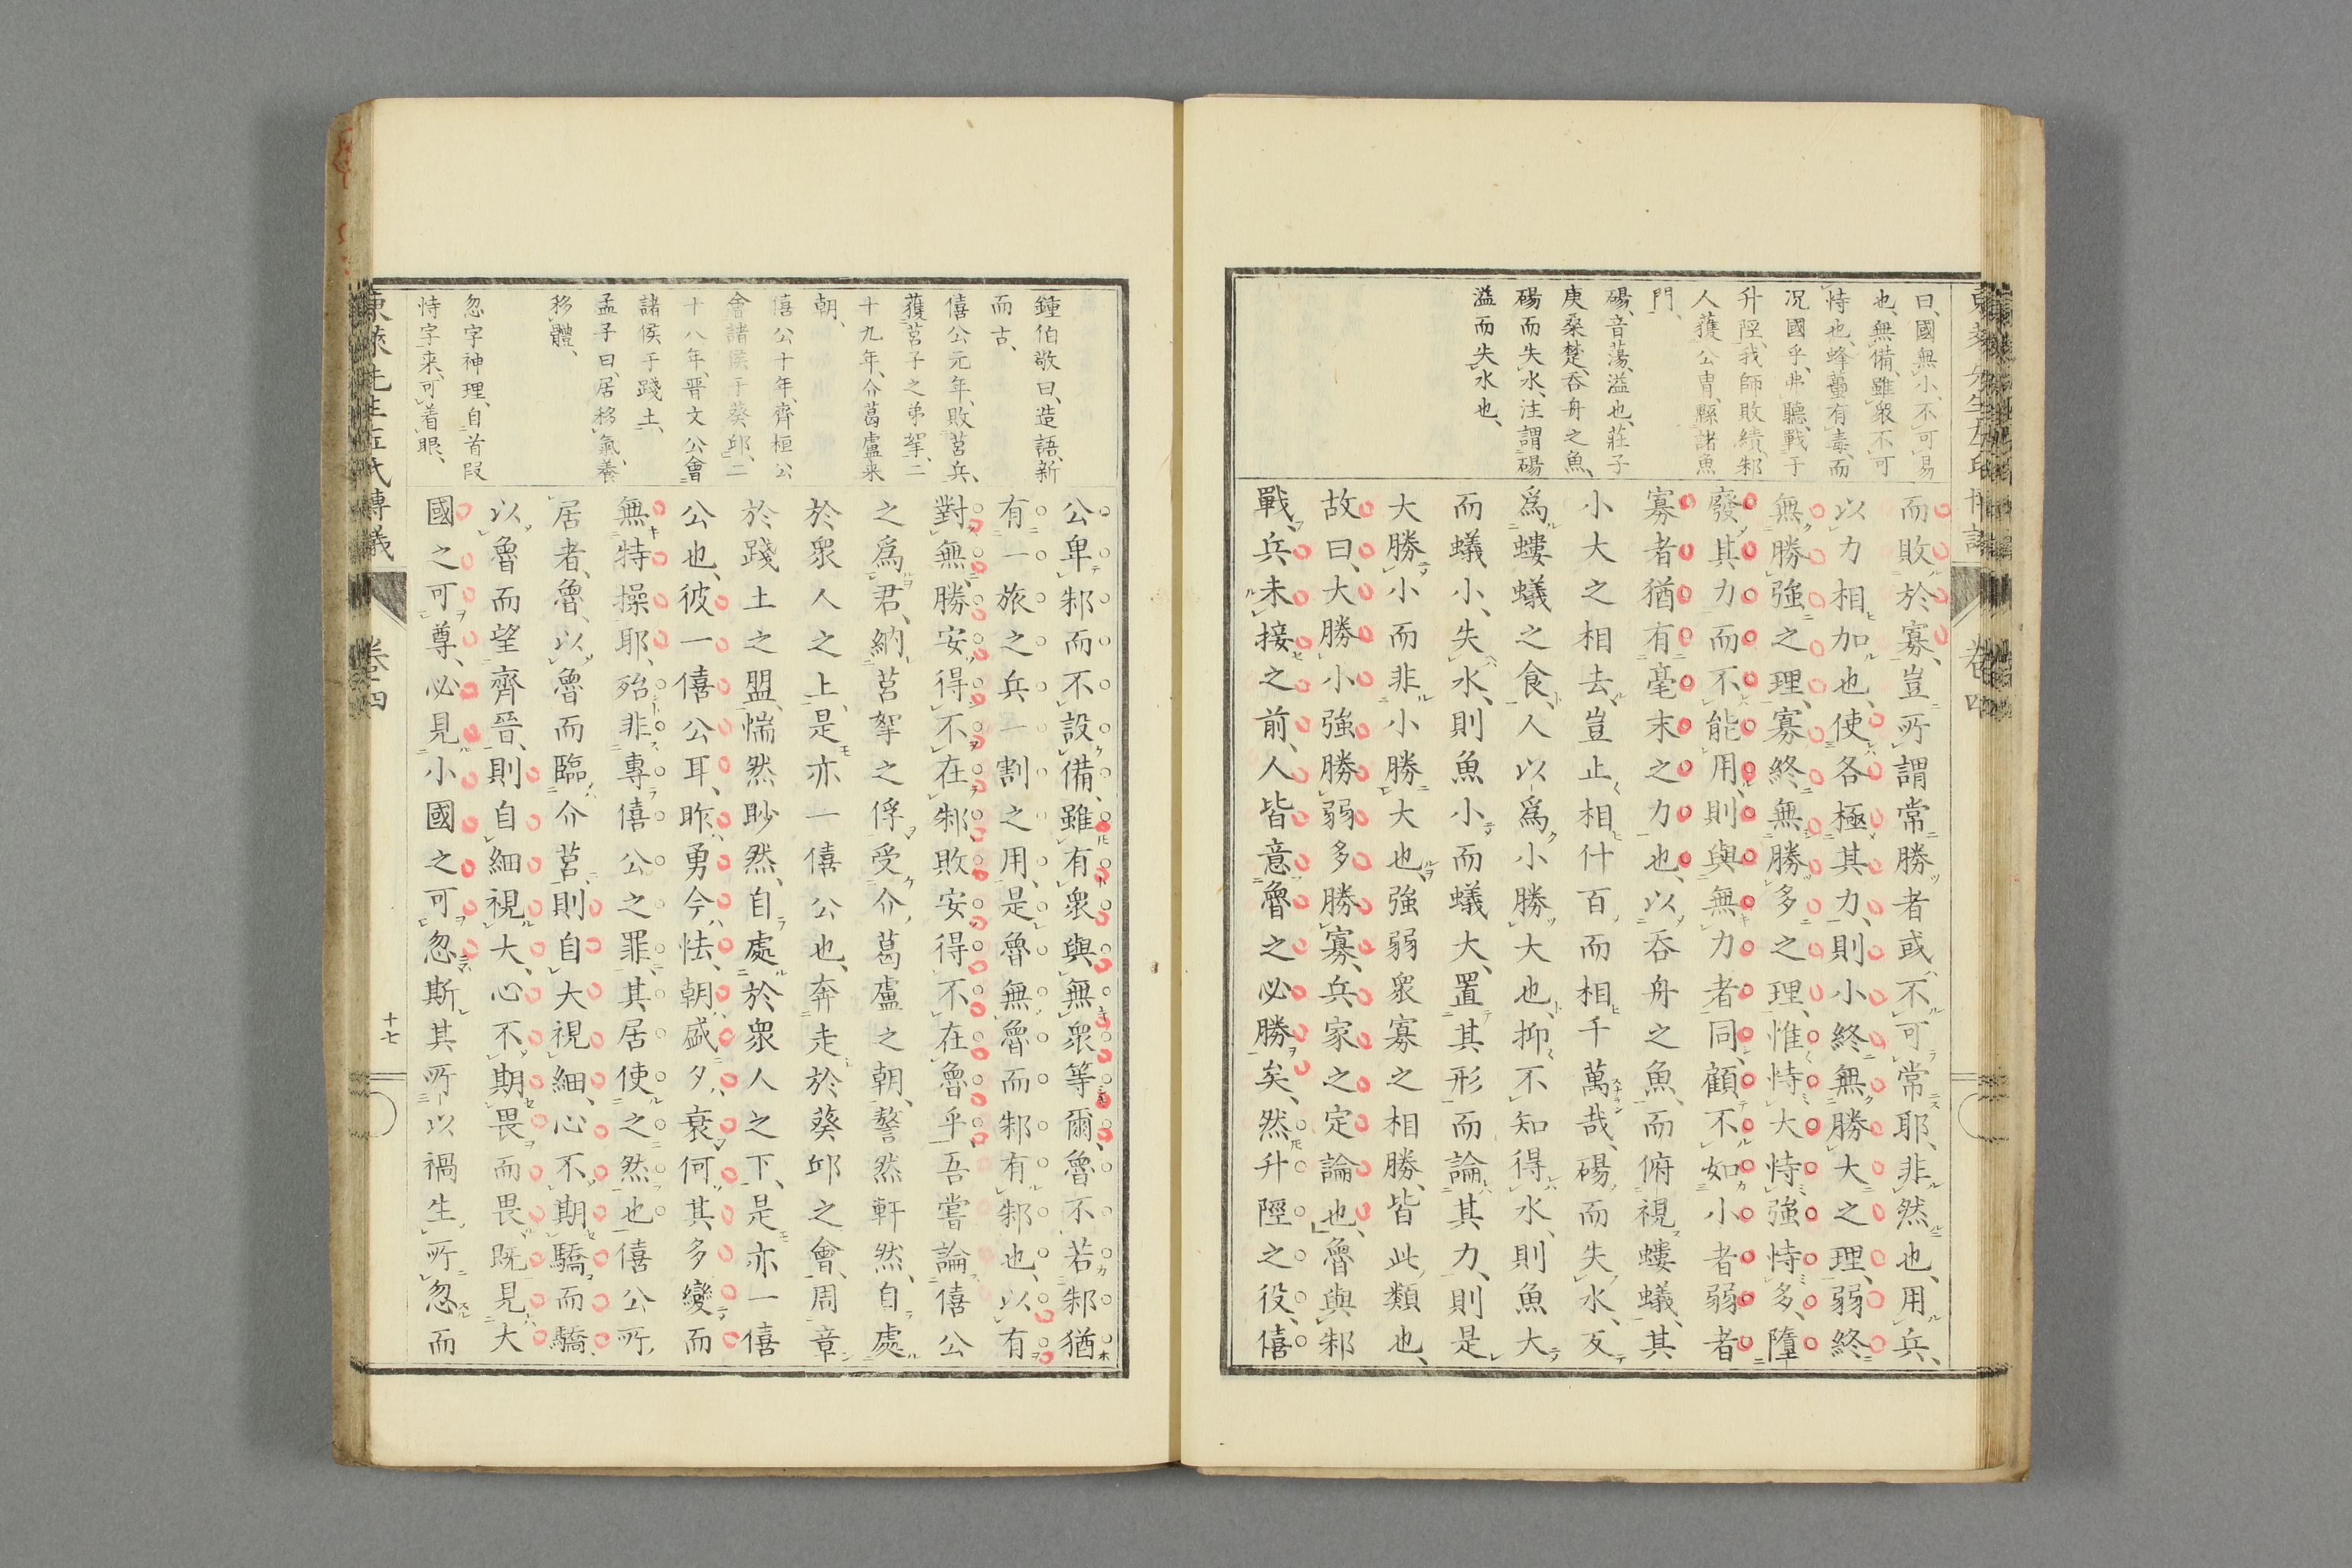 曰、國無小、不可易
也、無備、雖衆不可
恃也、蜂蠆有毒、而
况國乎、弗聽、戰于
升陘、我師敗績、邾
人獲公冑、縣諸魚
門、
碭、音蕩、溢也、莊子
庚桑楚、呑舟之魚、
碭而失水、注謂碭
溢而失水也、
而敗於寡、豈所謂常勝者或不可常耶、非然也、用兵、
以力相加也、使各極其力、則小終無勝大之理、弱終
無勝強之理、寡終無勝多之理、惟恃大恃強恃多、墮
廢其力而不能用、則與無力者同、顧不如小者弱者
寡者猶有毫末之力也、以呑舟之魚、而俯視螻蟻、其
小大之相去、豈止相什百、而相千萬哉、碭而失水、反
爲螻蟻之食、人以爲小勝大也、抑不知得水、則魚大
而蟻小、失水、則魚小而蟻大、置其形而論其力、則是
大勝小而非小勝大也、強弱衆寡之相勝、皆此類也、
故曰、大勝小強勝弱多勝寡、兵家之定論也、魯與邾
戰、兵未接之前、人皆意魯之必勝矣、然升陘之役、僖
卷四
鍾伯敬曰、造語、新
而古、
僖公元年、敗莒兵、
獲莒子之弟挐、二
十九年、介葛盧来
朝、
僖公十年、齊桓公
會諸侯于葵邱、二
十八年、晋文公會
諸侯于踐土、
孟子曰、居移氣、養
移體、
忽字神理、自首段
恃字来、可着眼、
公卑邾而不設備、雖有衆與無衆等爾、魯不若邾猶
有一旅之兵一割之用、是魯無魯而邾有邾也、以有
對無、勝安得不在邾、敗安得不在魯乎、吾嘗論僖公
之爲君、納莒挐之俘、受介葛盧之朝、謷然軒然、自處
於衆人之上、是亦一僖公也、奔走於葵邱之會、周章
於踐土之盟、惴然眇然、自處於衆人之下、是亦一僖
公也、彼一僖公耳、昨勇今怯、朝盛夕衰、何其多變而
無特操耶、殆非專僖公之罪、其居使之然也、僖公所
居者、魯、以魯而臨介莒、則自大視細、心不期驕而驕、
以魯而望齊晉、則自細視大、心不期畏而畏、既見大
國之可尊、必見小國之可忽、斯其所以禍生所忽而
東萊先生左氏博議
卷四
十七